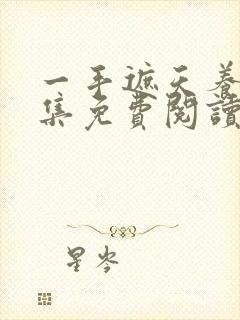 一手遮天养
集免費閱讀
星岑